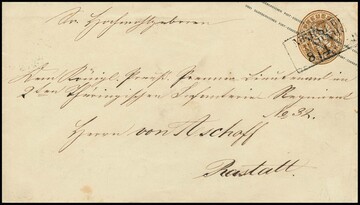 Sr. Hochwohlgeboren
Dem Königl. Preuß. Premier Lieutenant im
2ten Thüringischen Infanterie Regiment
No 32.
Herrn von Aschoff
Rastatt.